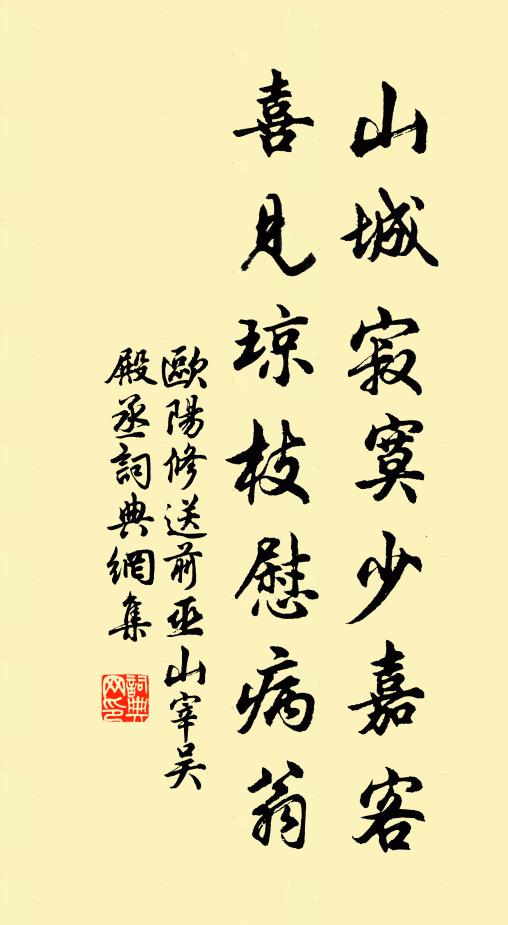 山城寂寞少嘉客
喜見琼枝慰病翁
歐陽修送前巫山宰吴
殿丞詞典網集
詞典
网印